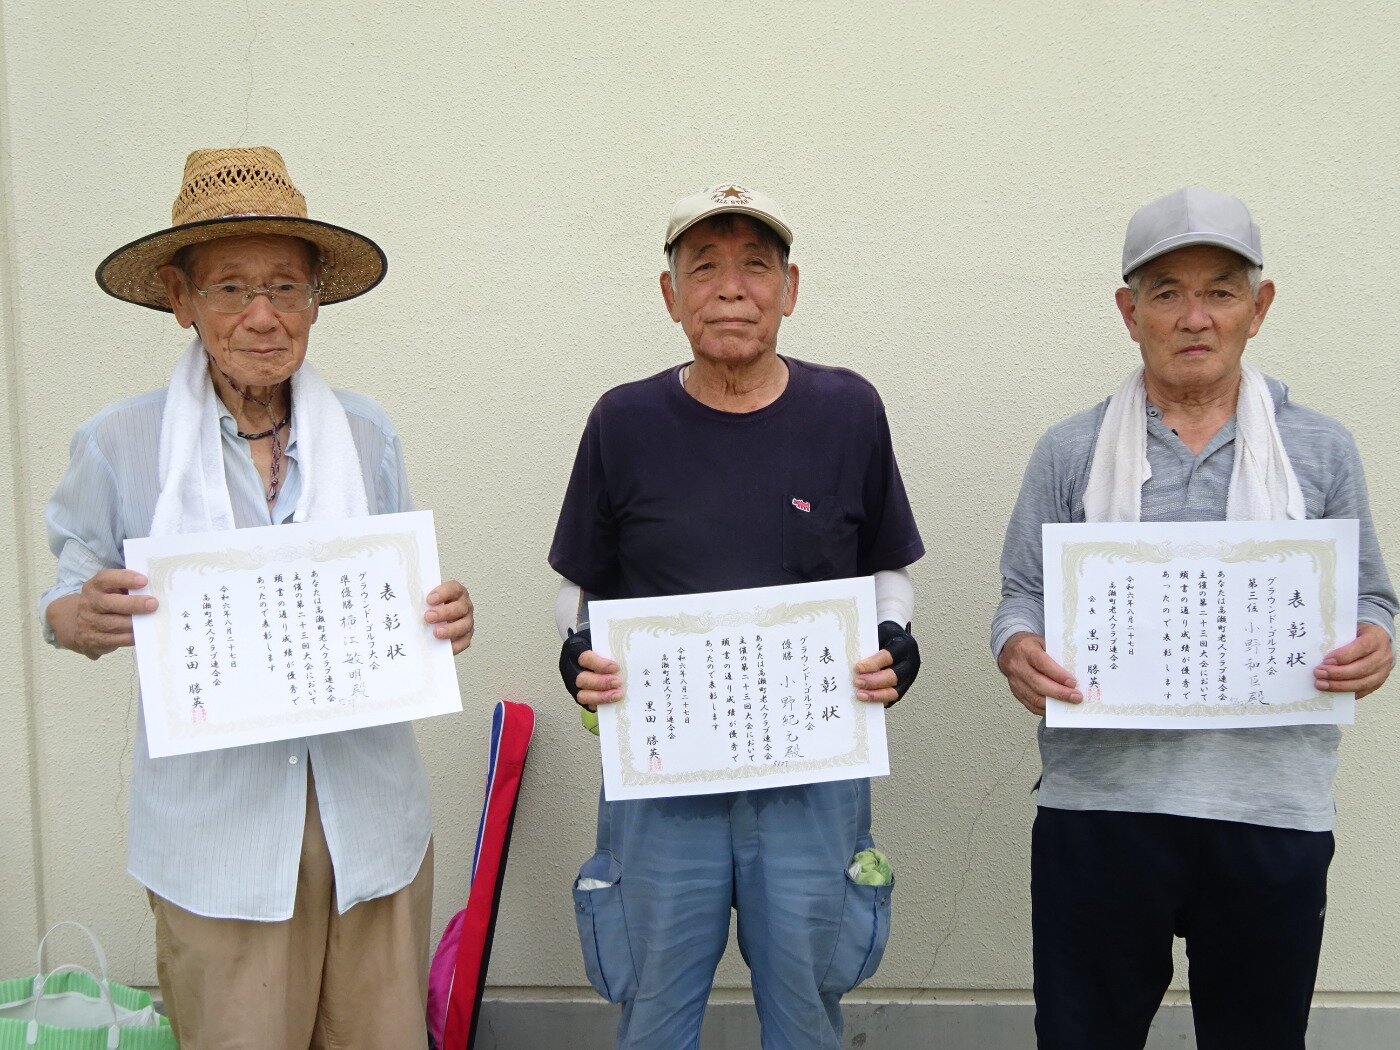 表彰状
グラウンド・ゴルフ大会
準優勝 横江敏明殿
あなたは高瀬町老人クラブ連合会
主催の第二十三回大会において
頭書の通り成績が優秀で
あったので表彰します
令和六年八月二十七日
高瀬町老人クラブ連合会
会長 黒田勝英
ALL STAR
表彰状
グラウンド・ゴルフ大会
優勝 小野紀元殿
あなたは高瀬町老人クラブ連合会
主催の第二十三回大会において
頭書の通り成績が優秀で
あったので表彰します
令和六年八月二十七日
高瀬町老人クラブ連合会
会長 黒田勝英
表彰状
グラウンド・ゴルフ大会
第三位 小野和臣殿
あなたは高瀬町老人クラブ連合会
主催の第二十三回大会において
頭書の通り成績が優秀で
あったので表彰します
令和六年八月二十七日
高瀬町老人クラブ連合会
会長 黒田勝英